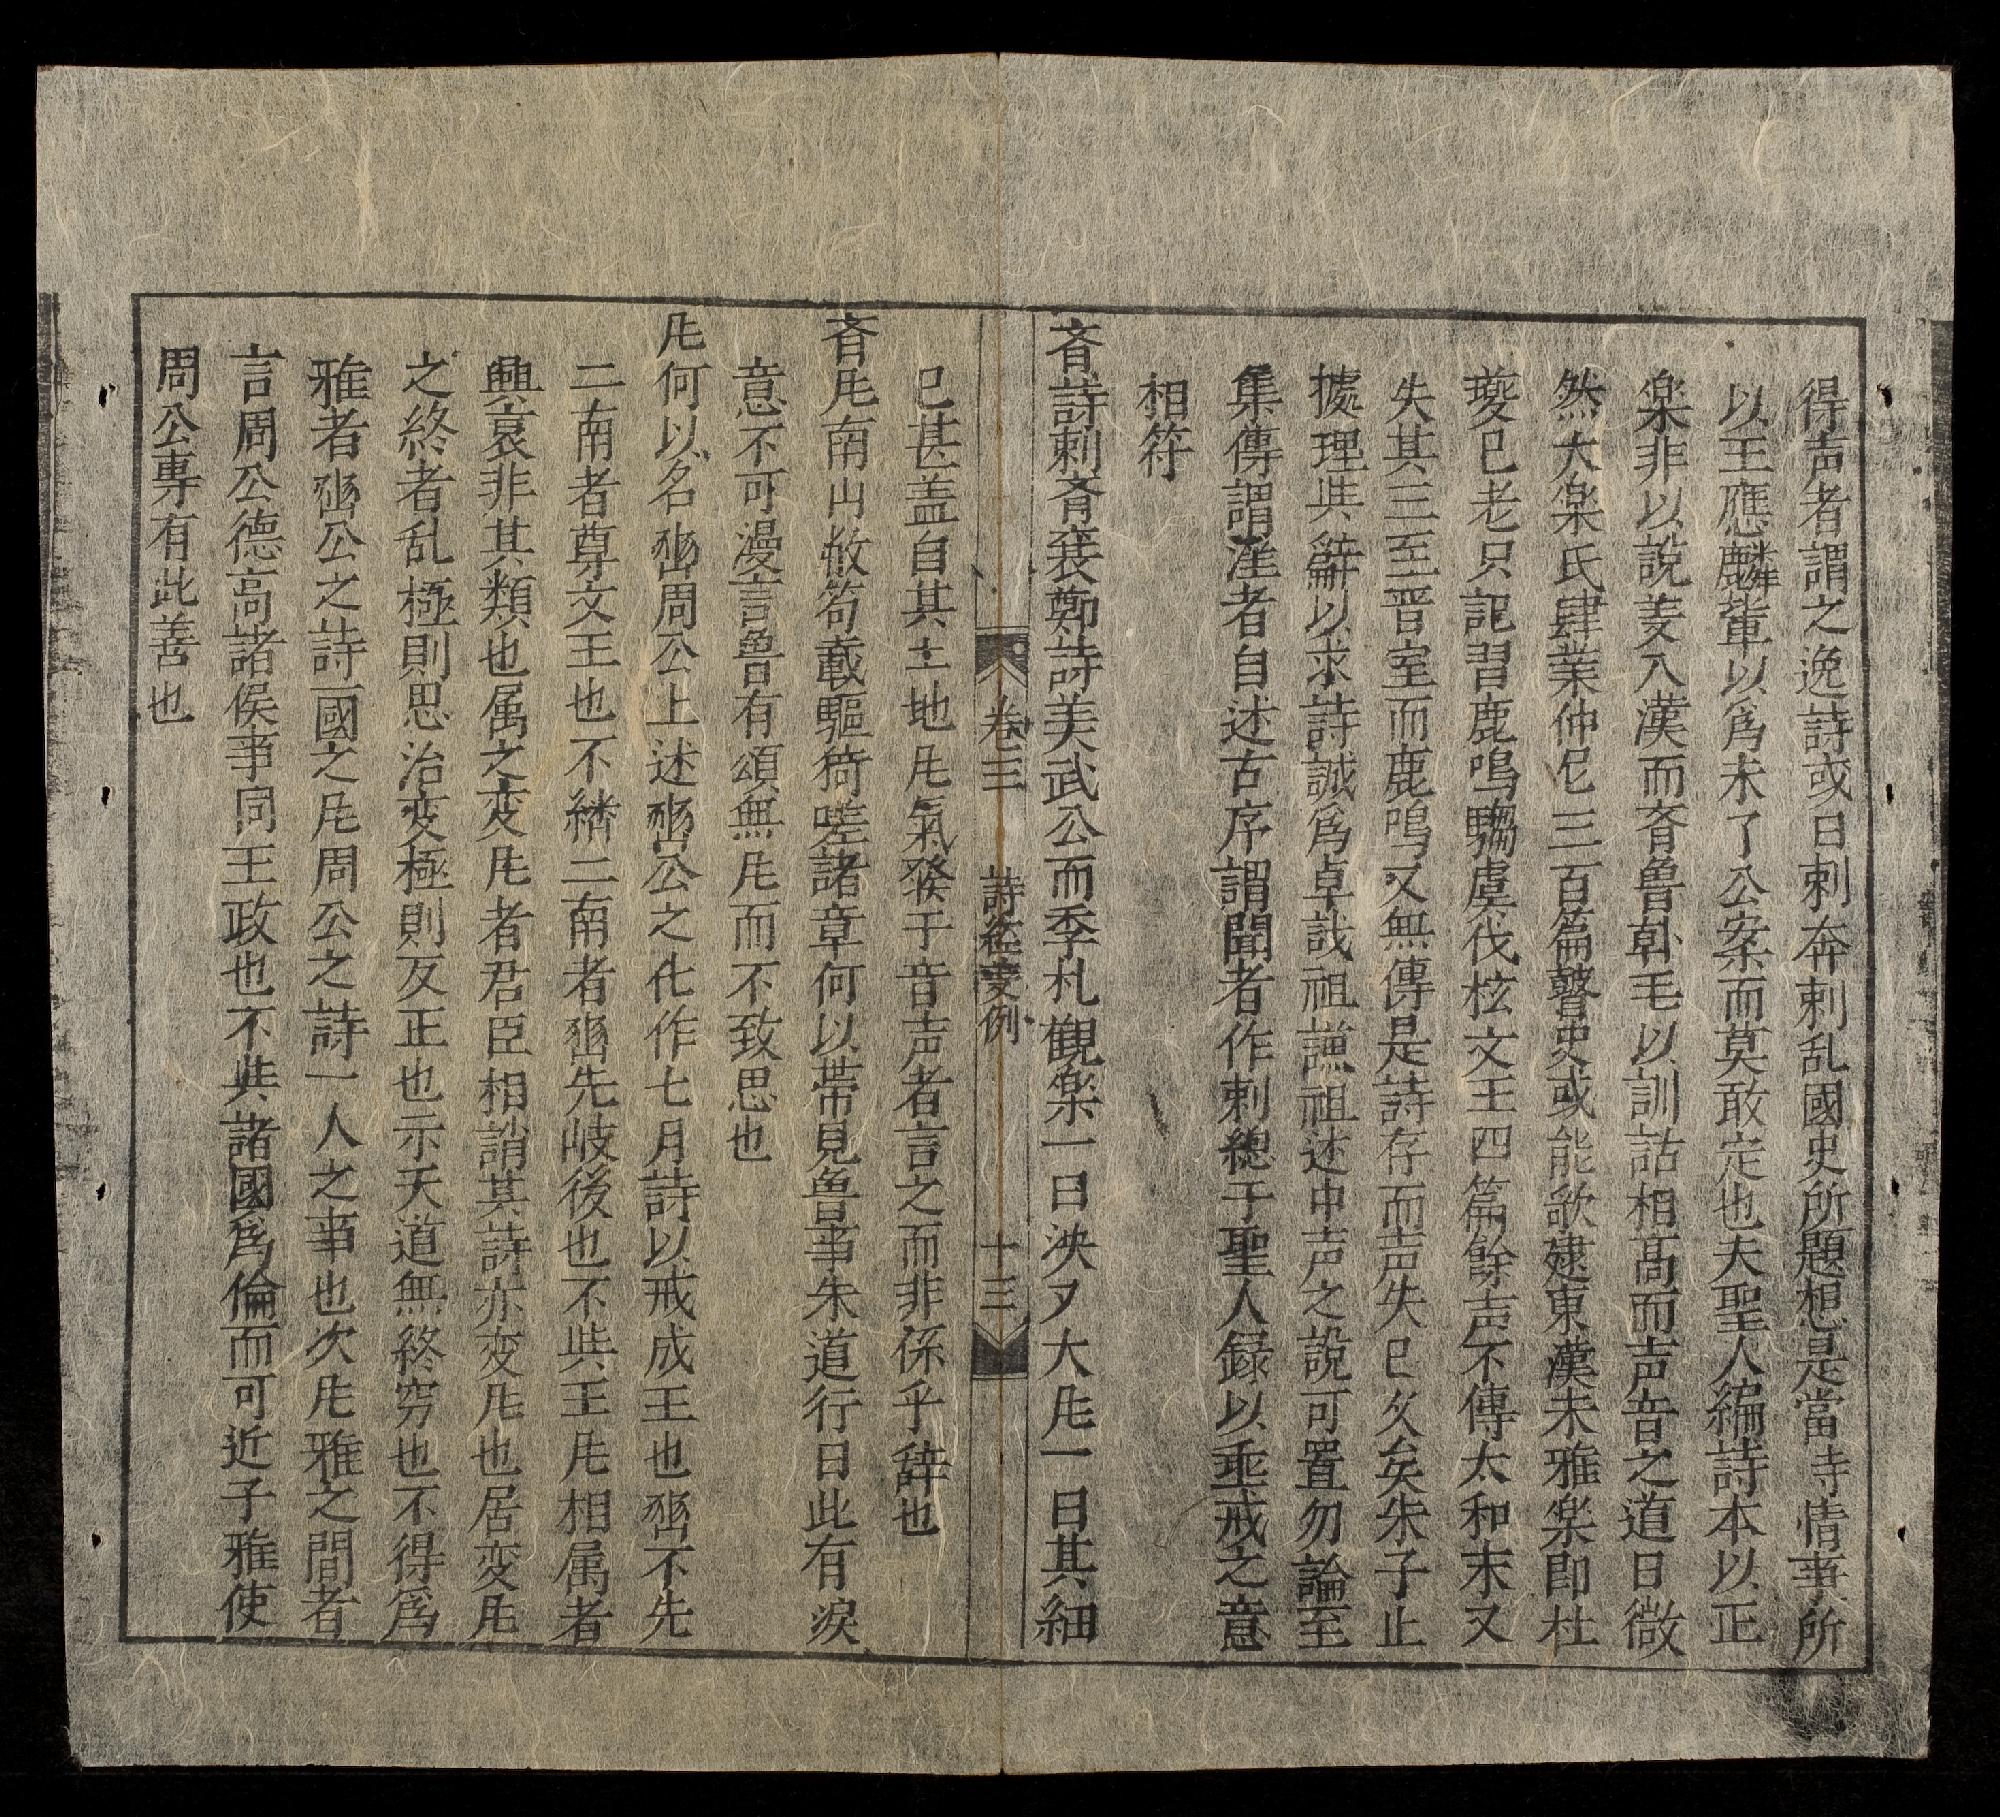 得声者謂之逸詩或曰刺奔刺乱國史所題想是當時情事所
以王應麟軰以爲未了公案而莫敢定也夫聖人編詩本以正
楽非以說羙入漢而斉魯韩毛以訓詁相髙而声音之道日微
然大楽氏肆業仲尼三百篇瞽史或能歌逮東漢未雅楽即杜
夔已老只記習鹿鳴騶虞伐枟文王四篇餘声不傳太和末又
失其三至晋室而鹿鳴又無傳是詩存而声失已久矣朱子止
據理與辭以求詩誠爲卓哉祖譙祖述申声之說可置勿論至
集傳謂淫者自述古序謂聞者作刺總于聖人録以垂戒之意
相符
斉詩刺斉襄鄭詩美武公而季札觀楽一曰泱又大𠙊一曰其細
已甚盖自其土地𠙊氣發于音声者言之而非係乎辞也
卷三 詩経变例 十三
斉𠙊南山敝笱載驅猗嗟諸章何以帶見魯事朱道行曰此有淚
意不可漫言魯有頌無𠙊而不致思也
𠙊何以名豳周公上述豳公之化作七月詩以戒成王也豳不先
二南者尊文王也不繙二南者豳先岐後也不與王𠙊相属者
興衰非其類也属之变𠙊者君臣相誚其詩亦变𠙊也居变𠙊
之終者乱極則思治变極則反正也示天道無終穷也不得爲
雅者豳公之詩一國之𠙊周公之詩一人之事也次𠙊雅之間者
言周公德高諸侯事同王政也不與諸國爲倫而可近子雅使
周公專有此善也